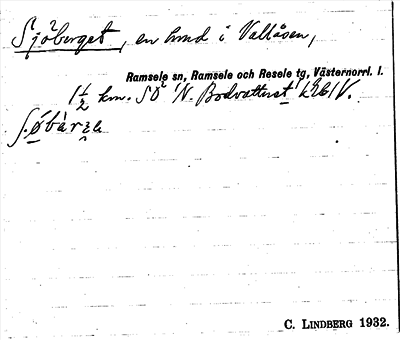 Sjöberget, en hund i Vallåsen,
Ramsele sn, Ramsele och Resele tg, Västernorrl. l.
1½ km. SÖ N. Bodvattnet
C. LINDBERG 1932.